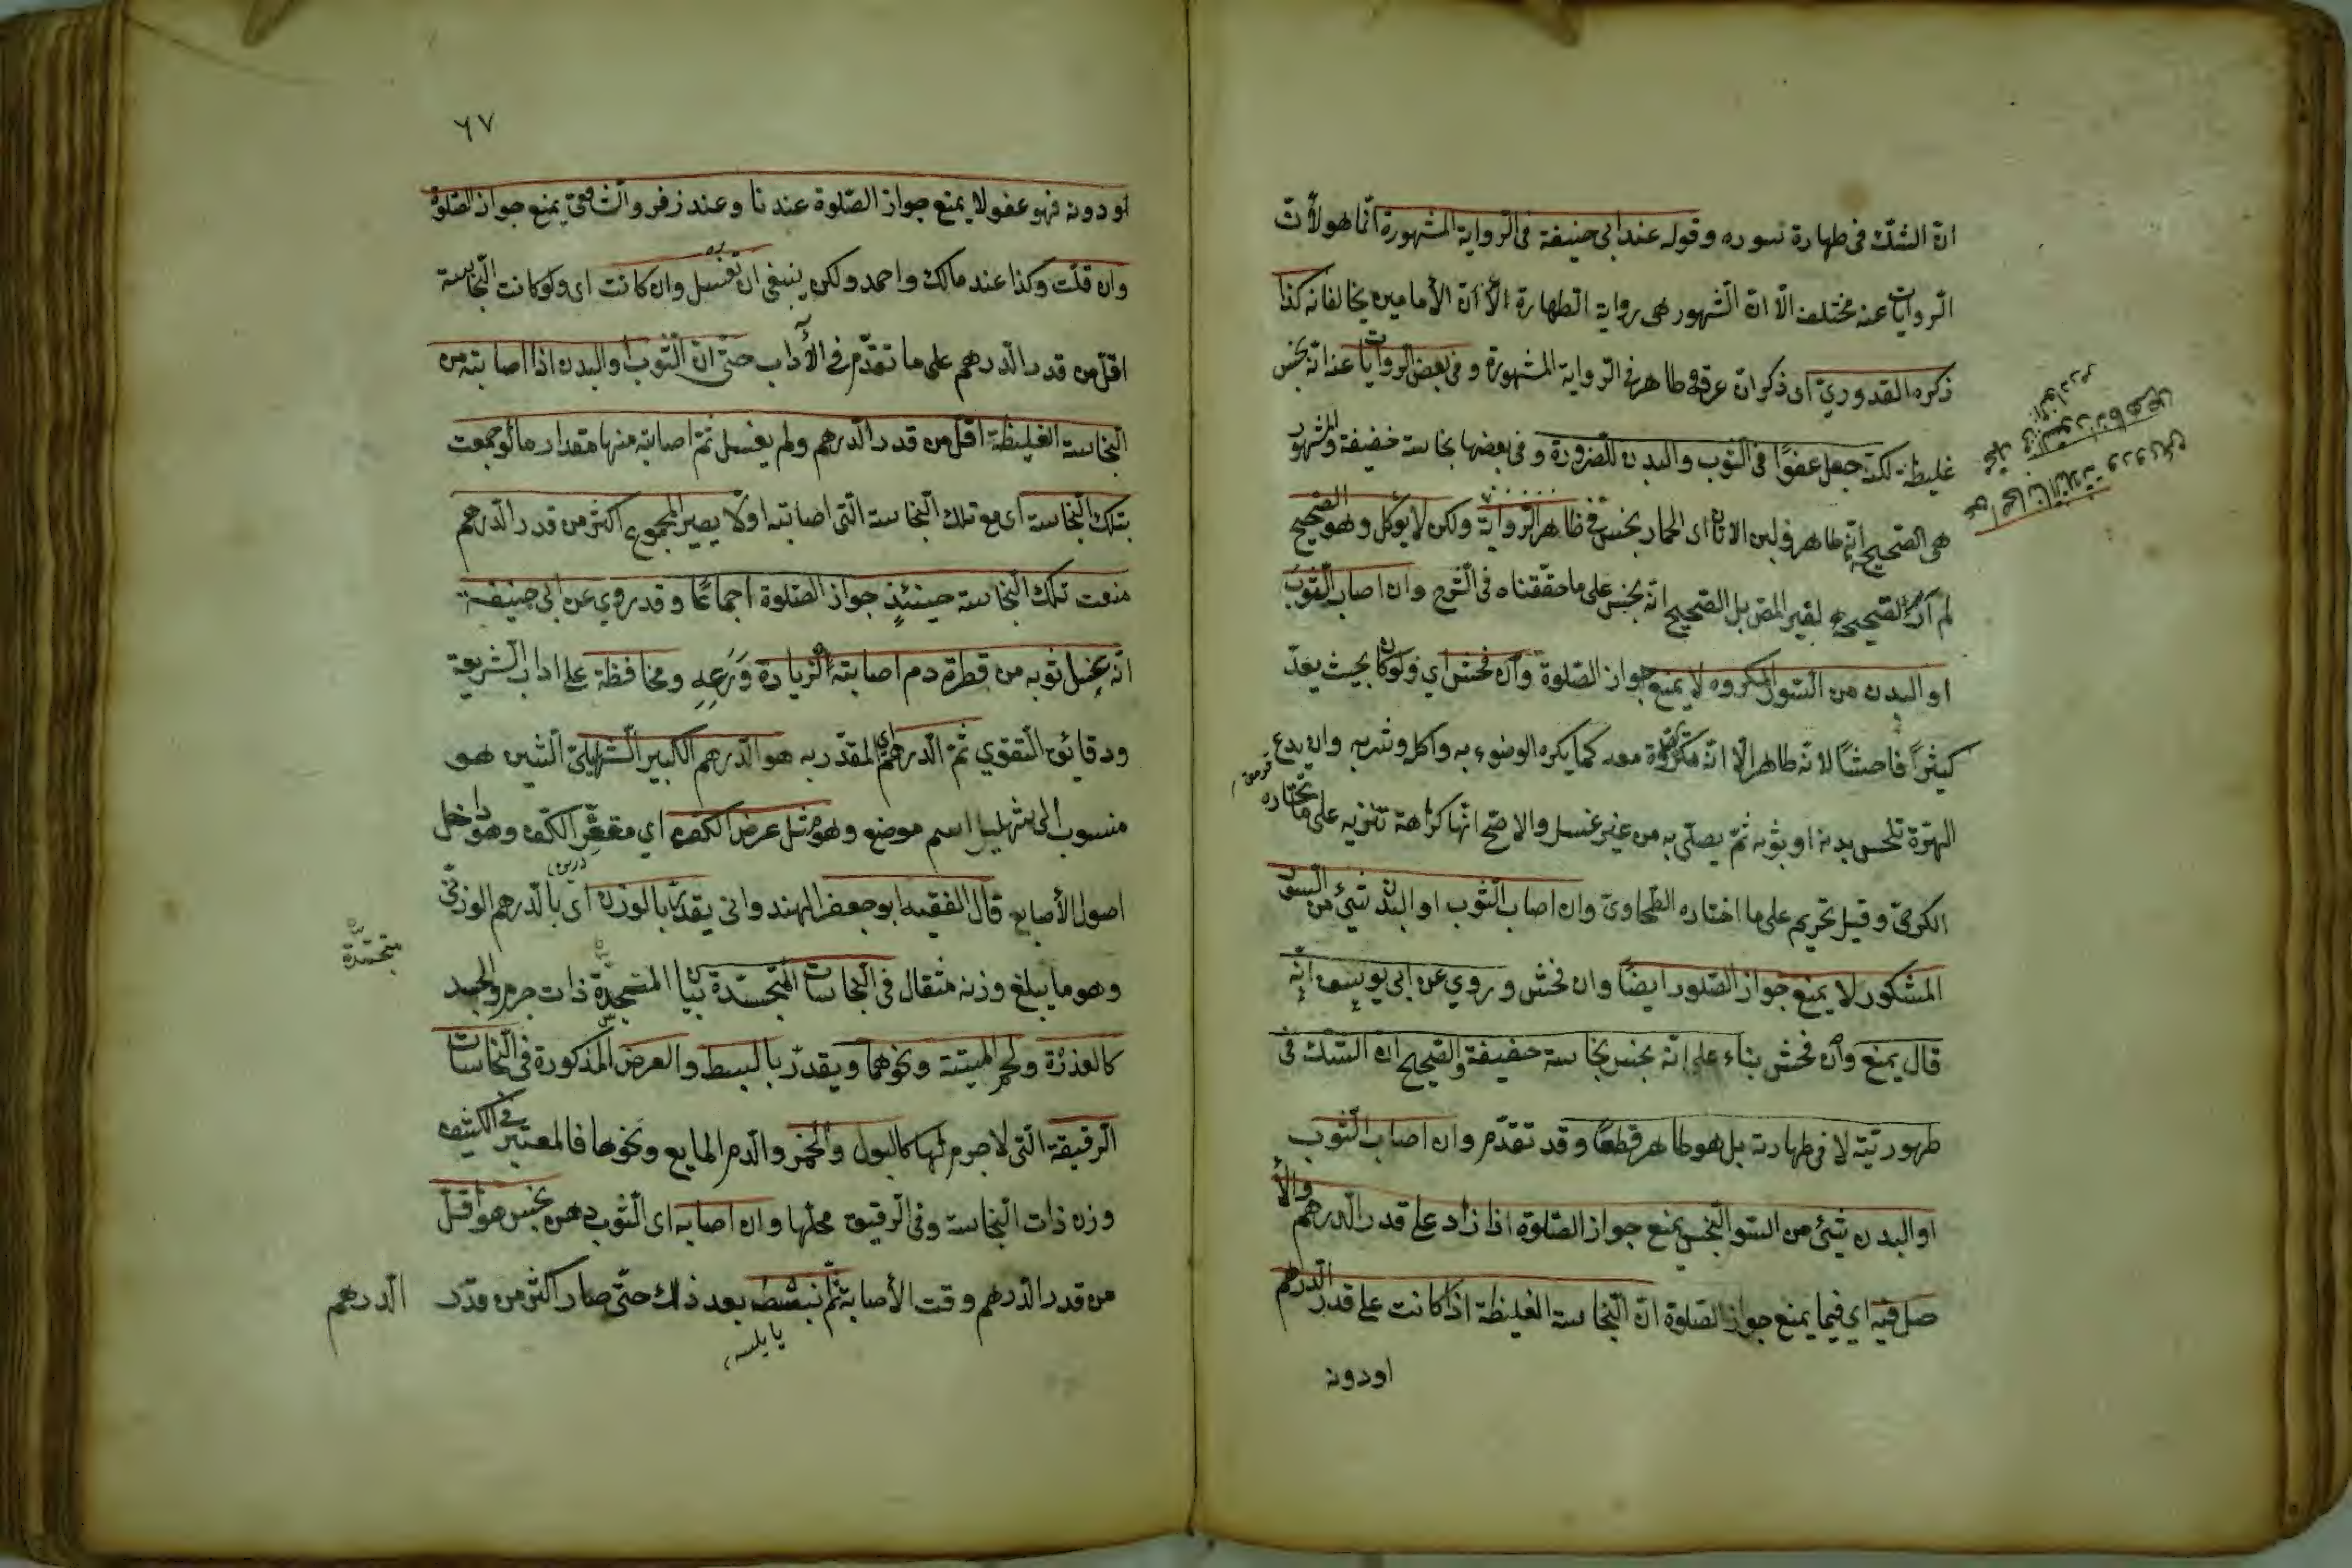 انّ الشكّ فى طهارة سوره وقوله عند ابى حنيفة فى الرواية المشهورة انّما هو لأنّ
الروايات عنه مختلفة الّا انّ المشهور هى رواية الطهارة الأ انّ الأمامين يخالفانه كذا
ذكره القدوريّ اى ذكر انّ عرقه طاهر فى الرواية المشهورة وفى بعض الروايات عنه انّه نجس
غليظة لكنّه جعل عفوًا فى الثوب والبدن للضرورة وفى بعضها نجاسة خفيفة والمشهور
هى الصّحيح انّه طاهر ولبن الاتان اى الحمار نجس فى ظاهر الرواية ولكن لا يؤكل وهو الصّحيح
لم أرَ الصّحيح لغير المص بل الصّحيح انّه نجس على ما حقّقناه فى الشرح وان اصاب الثوبَ
او البدن من السّور المكروه لا يمنع جواز الصّلوة وان فحش اي ولو كان بحيث يعدّ
كيثراً فاحشًا لانّه طاهر الّا انّه مكروه معه كما يكره الوضوء به واكل وشربه وان يدع
الهرّة تلحس بدنه او ثوبه ثمّ يصلّى به من غير غسل والاصّح انّها كراهة تنزيه على ما اختاره
الكرخىّ وقيل تحريم على ما اختاره الطّحاوىّ وان اصاب الثّوب او البدن شيئ من السور
المشكور لا يمنع جواز الصّلوة ايضًا وان فحش وروي عن ابى يوسف انّه
قال يمنع وان فحش بناء على انّه نجس نجاسة خفيفة والصّحيح ان الشّك فى
طهوريّته لا فى طهارته بل هو طاهر قطعًا وقد تقدّم وان اصاب الثّوب
او البدن شيئ من السّور النّجس يمنع جواز الصّلوة اذا زاد على قدر الدّرهم والأ
صل فيه اي فيما يمنع جواز الصّلوة انّ النّجاسة الغليظة اذا كانت على قدر الدّرهم
او دونه
٦٧
او دونه فهو عفو لا يمنع جواز الصّلوة عندنا وعند زفر والشافعىّ يمنع جواز الصّلوة
وان قلّت وكذا عند مالك واحمد ولكن ينبغى ان تغسل وان كانت اى ولو كانت النّجاسة
اقلّ من قدر الدّرهم على ما تقدّم فى الأداب حتّى انّ الثّوب او البدن اذا اصابته من
النّجاسة الغليظة اقلّ من قدر الدّرهم ولم يغسل ثمّ اصابته منها مقدار ما لو جمعت
بتلك النّجاسة اى مع تلك النّجاسة الّتى اصابته اولًا يصير المجموع اكثر من قدر الدّرهم
منعت تلك النّجاسة حينئذٍ جواز الصّلوة اجماعًا وقد روي عن ابى حنيفة
انّه غسل ثوبه من قطرة دم اصابته لزيادة وَرَعِهِ ومحافظة على اداب الشّريعة
ودقايق التّقوي ثمّ الدّرهم المقدّر به هو الدّرهم الكبير الشّهليلىّ الشين هو
منسوب الى شهليل اسم موضع وهو مثل عرض الكفّ اي مقعّر الكفّ وهو داخل
اصول الأصابع قال الفقيه ابو جعفر الهندوانى يقدّر بالوزن اى بالدّرهم الوزنىّ
وهو ما يبلغ وزنه مثقال فى النّجاسات المتجسّدة بيان المتجسّدة ذات جرم والجسد
متجسّدة
كالعذرة ولحم الميتة ونحوهما ويقدّر بالبسط والعرض المذكورة فى النّجاسات
الرقيقة الّتى لا جرم لها كالبول والخمر والدّم المايع ونحوها فالمعتبر فى الكثيف
وزن ذات النّجاسة وفى الرّقيق محلّها وان اصابه اى الثّوب دهن نجس هو اقلّ
من قدر الدّرهم وقت الأصابة ثمّ نبسط بعد ذلك حتّى صار اكثر من قدر
الدرهم